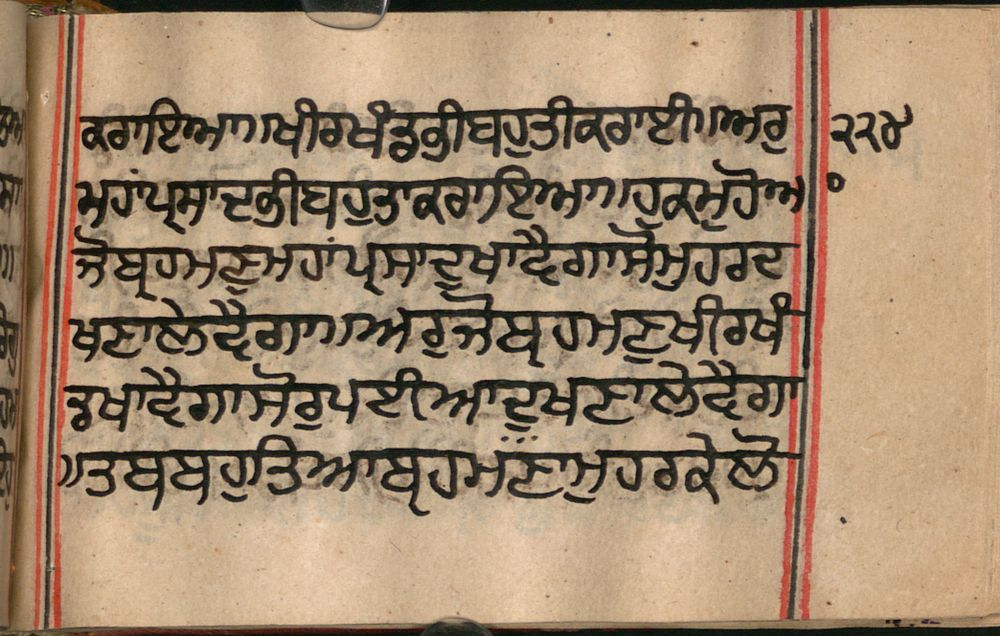 ਕਰਾਇਆ॥ਖੀਰਖੰਡਭੀਬਹੁਤੀਕਰਾਈ॥ਅਰੁ ੨੨੪
ਮਹਾਂਪ੍ਰਸਾਦਭੀਬਹੁਤਾਕਰਾਇਆ॥ਹੁਕਮੁਹੋਆ
ਜੋਬ੍ਰਹਮਣੁਮਹਾਂਪ੍ਰਸਾਦੁਖਾਵੈਗਾਸੋਮੁਹਰਦ
ਖਣਾਲੇਵੈਗਾ॥ਅਰੁਜੋਬ੍ਰਹਮਣੁਖੀਰਖੰ
ਡਖਾਵੈਗਾਸੋਰੁਪਈਆਦੁਖਣਾਲੇਵੈਗਾ
॥ਤਬਬਹੁਤਿਆਬ੍ਰਹਮਣਾਮੁਹਰਕੇਲੋ